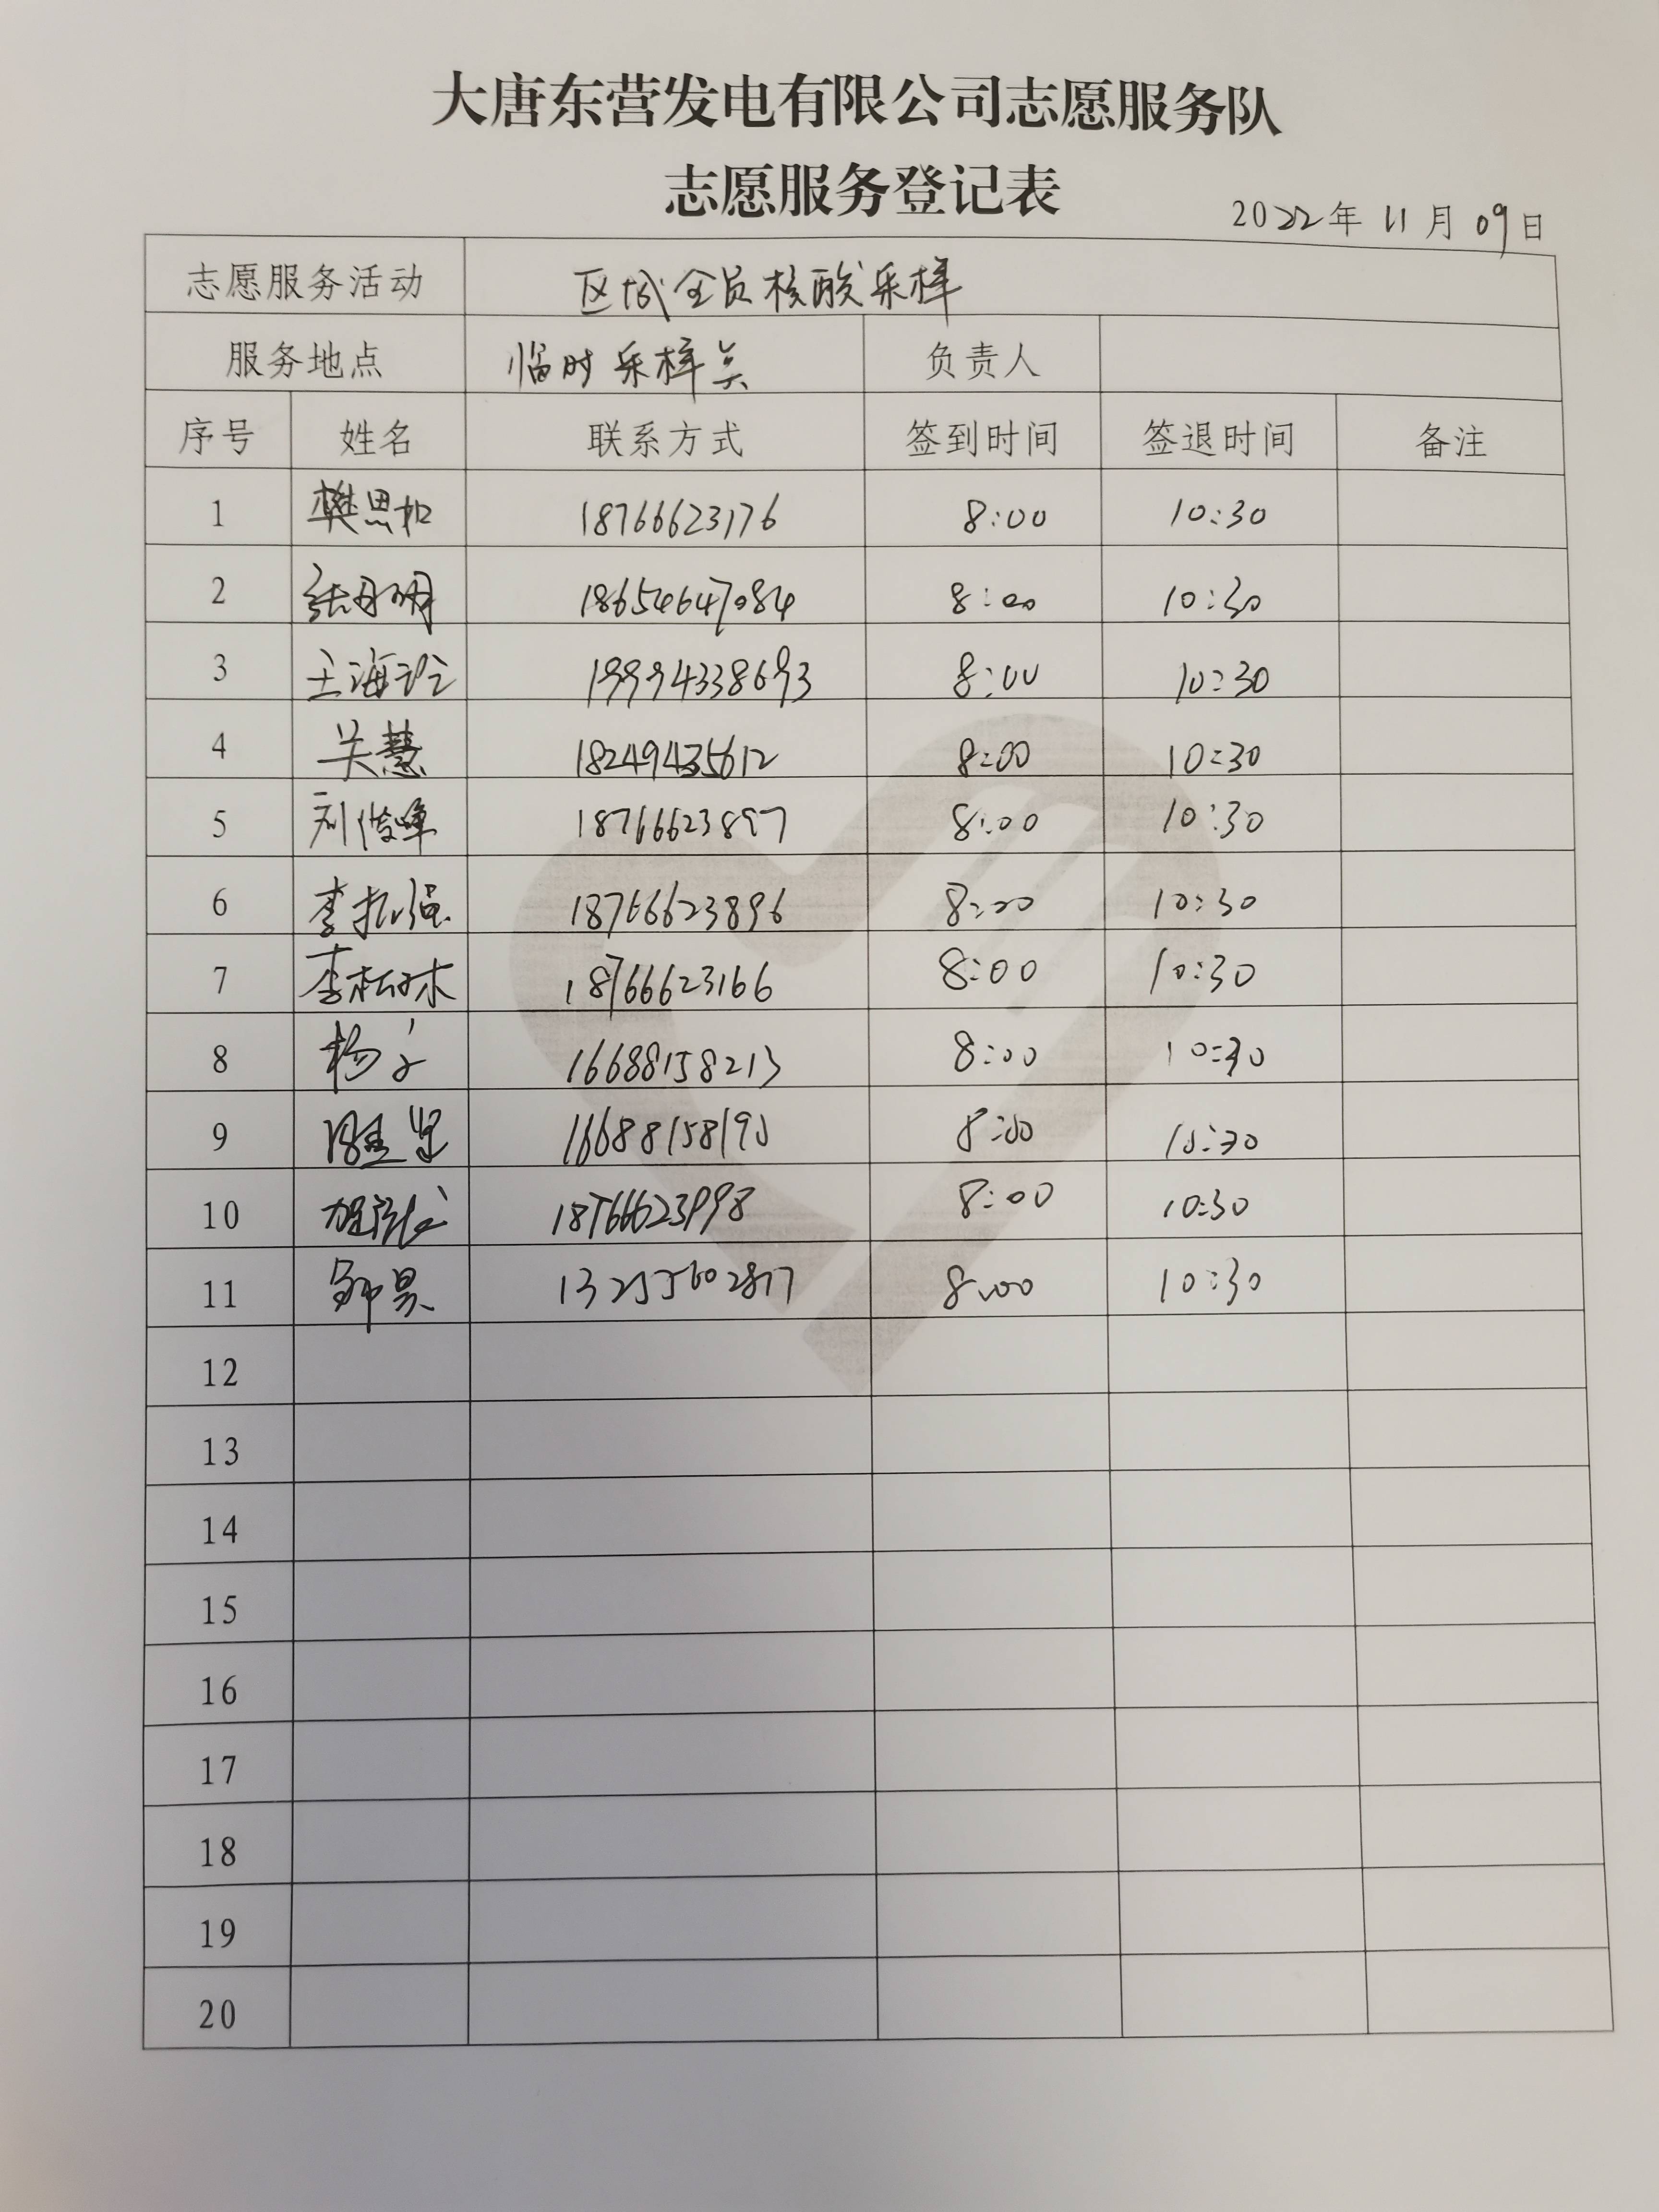 大唐东营发电有限公司志愿服务队
志愿服务登记表
2022年 11月 09日
志愿服务活动 区域全员核酸采样
服务地点 临时采样点 负责人
序号 姓名 联系方式 签到时间 签退时间 备注
1 樊思和 18766623176 8:00 10:30
2 张丹明 18654647084 8:00 10:30
3 王海 19994338693 8:00 10:30
4 关慧 18249435612 8:00 10:30
5 刘俊峰 18766623897 8:00 10:30
6 李振强 18766623896 8:00 10:30
7 李松林 18766623166 8:00 10:30
8 杨 16688158213 8:00 10:30
9 16688158190 8:00 10:30
10 18766623998 8:00 10:30
11 郭昊 13255602817 8:00 10:30
12
13
14
15
16
17
18
19
20